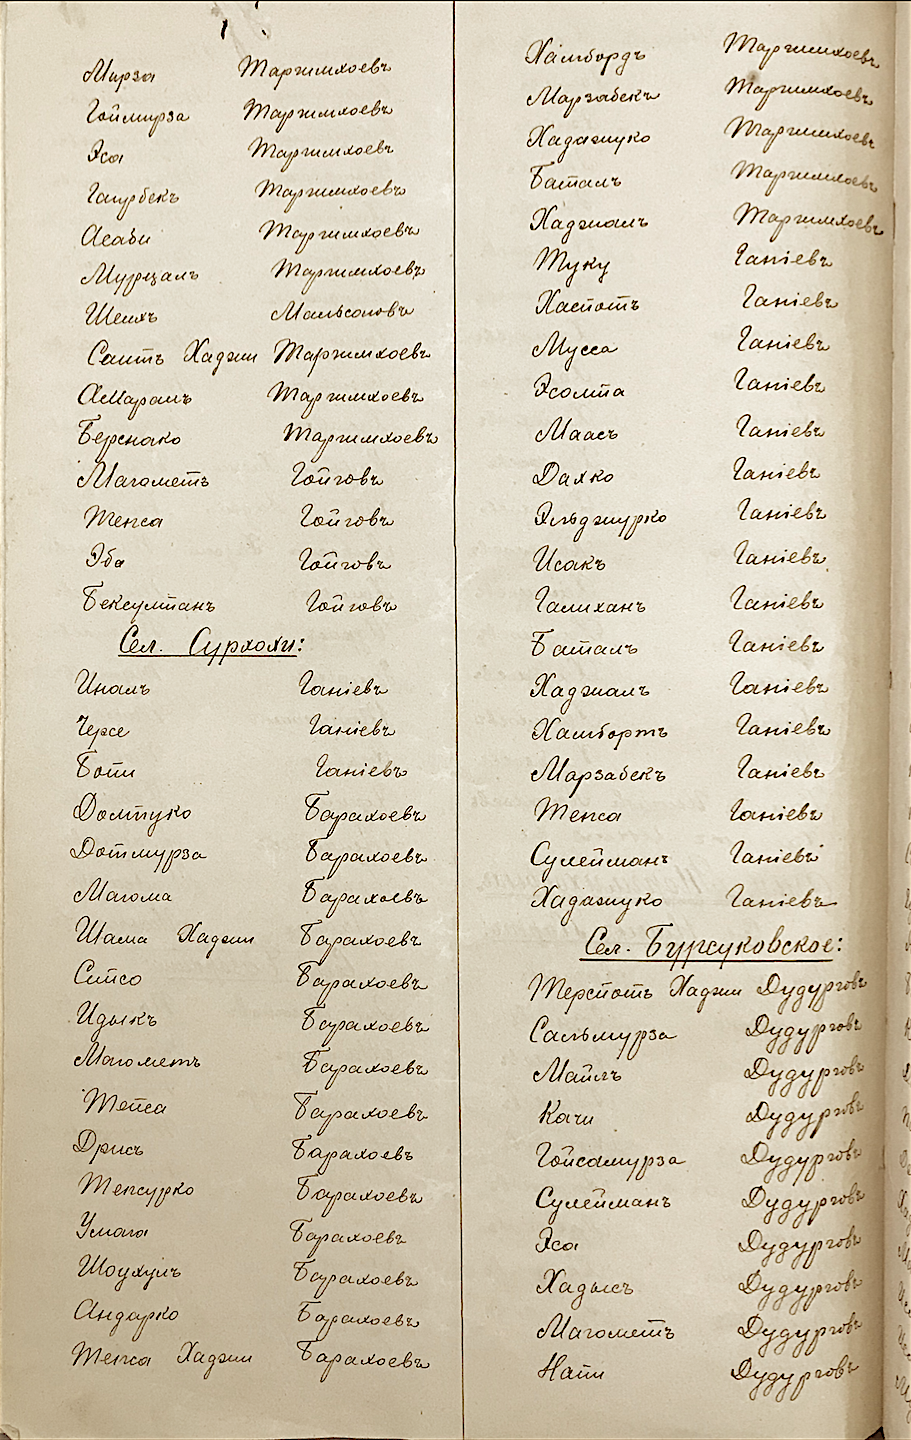 Мирза Таргимхоевъ
Гоймирза Таргимхоевъ
Эса Таргимхоевъ
Гаирбекъ Таргимхоевъ
Асаби Таргимхоевъ
Мурцалъ Таргимхоевъ
Шеихъ Мальсаговъ
Саитъ Хаджи Таргимхоевъ
Амаралъ Таргимхоевъ
Берснако Таргимхоевъ
Магометъ Гойговъ
Тепса Гойговъ
Эба Гойговъ
Бексултанъ Гойговъ
Сел. Сурхохи:
Иналъ Ганіевъ
Черсе Ганіевъ
Боти Ганіевъ
Долтуко Барахоевъ
Дотмурза Барахоевъ
Магома Барахоевъ
Шама Хаджи Барахоевъ
Ситсо Барахоевъ
Идыкъ Барахоевъ
Магометъ Барахоевъ
Тепса Барахоевъ
Дрисъ Барахоевъ
Тепсурко Барахоевъ
Умага Барахоевъ
Шоухулъ Барахоевъ
Андарко Барахоевъ
Тепса Хаджи Барахоевъ
Хамбордъ Таргимхоевъ
Марзабекъ Таргимхоевъ
Хадажуко Таргимхоевъ
Баталъ Таргимхоевъ
Хаджалъ Таргимхоевъ
Туку Ганіевъ
Хаспотъ Ганіевъ
Мусса Ганіевъ
Эсолта Ганіевъ
Маасъ Ганіевъ
Дахко Ганіевъ
Эльджурко Ганіевъ
Исакъ Ганіевъ
Галиханъ Ганіевъ
Баталъ Ганіевъ
Хаджалъ Ганіевъ
Хамбортъ Ганіевъ
Марзабекъ Ганіевъ
Тепса Ганіевъ
Сулейманъ Ганіевъ
Хадажуко Ганіевъ
Сел. Бурсуковское:
Терспотъ Хаджи Дудурговъ
Сальмурза Дудурговъ
Маилъ Дудурговъ
Качи Дудурговъ
Гойсамурза Дудурговъ
Сулейманъ Дудурговъ
Эса Дудурговъ
Хадысъ Дудурговъ
Магометъ Дудурговъ
Нати Дудурговъ